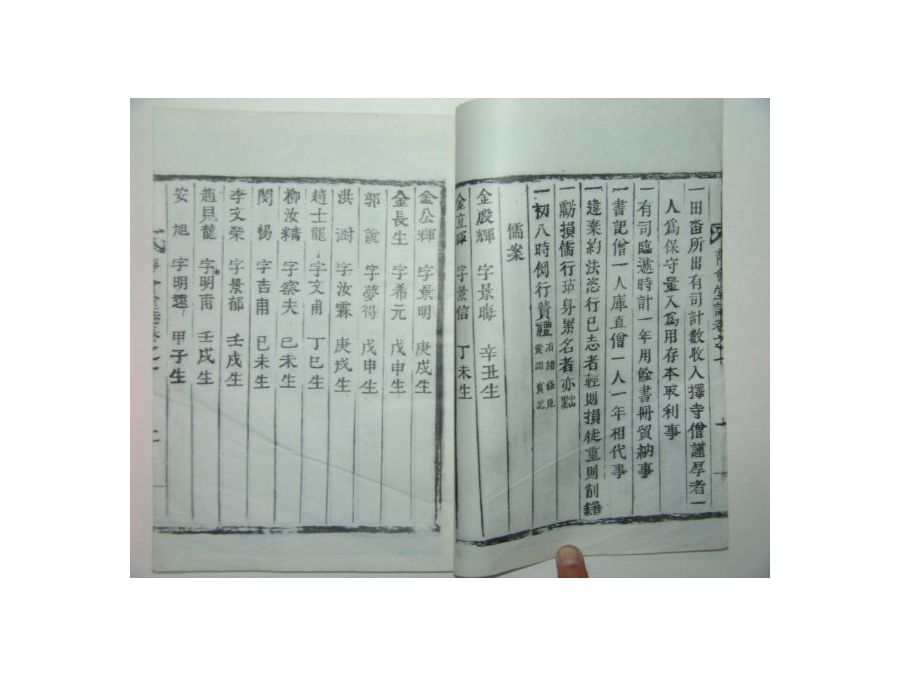 一田畓所出有司計數收入擇寺僧謹厚者一
人爲保守量入爲用存本取利事
一有司臨遞時計一年用餘書冊貿納事
一書記僧一人庫直僧一人一年相代事
一違棄約法恣行已志者輕則損徒重則削籍
一虧損儒行玷身累名者亦黜
一初入時例行贄禮
儒案
金殷輝 字景晦 辛丑生
金立輝 字景信 丁未生
金公輝 字景明 庚戌生
金長生 字希元 戊申生
郭說 字夢得 戊申生
洪澍 字汝霖 庚戌生
趙士龍 字文甫 丁巳生
柳汝精 字察夫 己未生
閔愓 字吉甫 己未生
李文榮 字景郁 壬戌生
趙見龍 字明甫 壬戌生
安旭 字明遠 甲子生